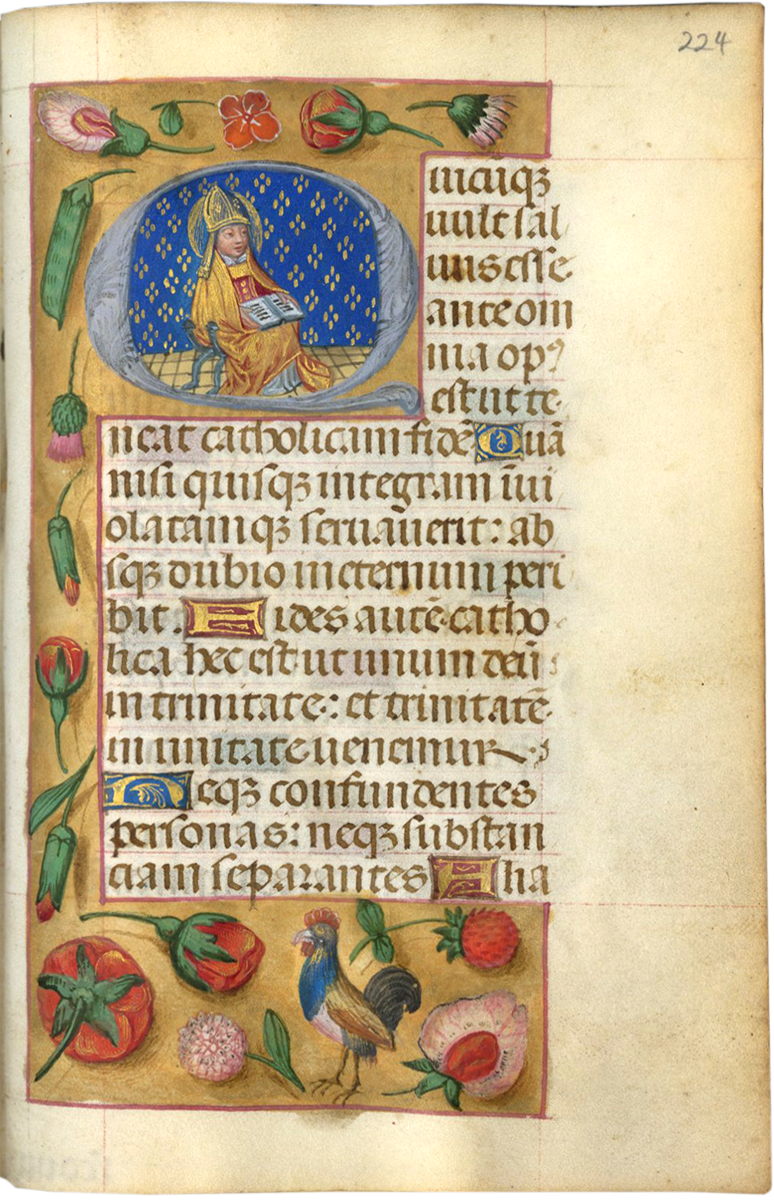 224
Quicūqꝫ
uult sal
uus esse
ante om
nia opꝰ
est ut te
neat catholicam fidē Quā
nisi quisqꝫ integram īui
olatamqꝫ seruauerit: ab
sqꝫ dubio in eternum peri
bit. Fides autē catho
lica hec est ut unum deū
in trinitate: et trinitatē
in unitate ueneremur
Neqꝫ confundentes
personas: neqꝫ substan
ciam separantes Alia